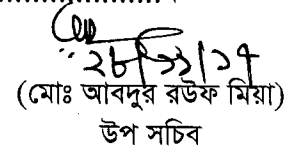 ২৮/১১/১৭
(মোঃ আবদুর রউফ মিয়া)
উপ সচিব